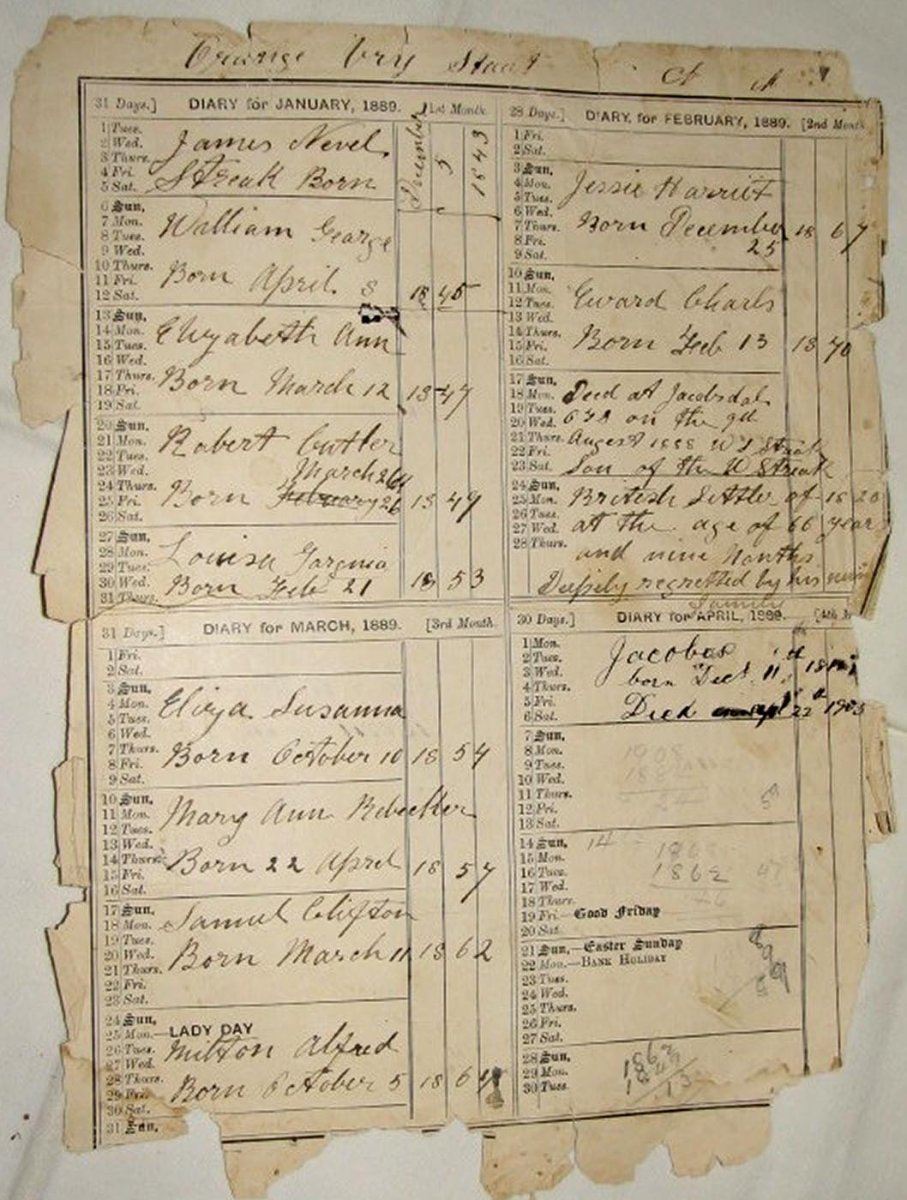 Orange Vry Staat
31 Days.] DIARY for JANUARY, 1889. [1st Month.
1 Tues.
2 Wed.
3 Thurs.
4 Fri.
5 Sat.
James Nevel
Streak Born
December 5 1843
6 Sun.
7 Mon.
8 Tues.
9 Wed.
10 Thurs.
11 Fri.
12 Sat.
William George
Born April 8 18 45
13 Sun.
14 Mon.
15 Tues.
16 Wed.
17 Thurs.
18 Fri.
19 Sat.
Elizabeth Ann
Born March 12 18 47
20 Sun.
21 Mon.
22 Tues.
23 Wed.
24 Thurs.
25 Fri.
26 Sat.
Robert Cutler
March 26
Born February 26 18 49
27 Sun.
28 Mon.
29 Tues.
30 Wed.
31 Thurs.
Louisa
Born Feb 21 18 53
28 Days.] DIARY for FEBRUARY, 1889. [2nd Month.
1 Fri.
2 Sat.
3 Sun.
4 Mon.
5 Tues.
6 Wed.
7 Thurs.
8 Fri.
9 Sat.
Jessie Harriet
Born December 18 67
25
10 Sun.
11 Mon.
12 Tues.
13 Wed.
14 Thurs.
15 Fri.
16 Sat.
Eward Charls
Born Feb 13 18 70
17 Sun.
18 Mon.
19 Tues.
20 Wed.
21 Thurs.
22 Fri.
23 Sat.
Died at Jacobsdal
on the
August 1888 Streak
Son of the Streak
24 Sun.
25 Mon.
26 Tues.
27 Wed.
28 Thurs.
British Settler of 1820
at the age of 66 years
and nine Months
Deepily regretted by his
family
31 Days.] DIARY for MARCH, 1889. [3rd Month.
1 Fri.
2 Sat.
3 Sun.
4 Mon.
5 Tues.
6 Wed.
7 Thurs.
8 Fri.
9 Sat.
Eliza Susanna
Born October 10 18 54
10 Sun.
11 Mon.
12 Tues.
13 Wed.
14 Thurs.
15 Fri.
16 Sat.
Mary Ann Rebecker
Born 22 April 18 57
17 Sun.
18 Mon.
19 Tues.
20 Wed.
21 Thurs.
22 Fri.
23 Sat.
Samuel Clifton
Born March 11 18 62
24 Sun.
25 Mon.—LADY DAY
26 Tues.
27 Wed.
28 Thurs.
29 Fri.
30 Sat.
31 Sun.
Milton Alfred
Born October 5 18
30 Days.] DIARY for APRIL, 1889. [4th
1 Mon.
2 Tues.
3 Wed.
4 Thurs.
5 Fri.
6 Sat.
Jacobus
born Dect 11
Died 22
7 Sun.
8 Mon.
9 Tues.
10 Wed.
11 Thurs.
12 Fri.
13 Sat.
14 Sun.
15 Mon.
16 Tues.
17 Wed.
18 Thurs.
19 Fri—Good Friday
20 Sat.
14
1862
21 Sun.—Easter Sunday
22 Mon.—BANK HOLIDAY
23 Tues.
24 Wed.
25 Thurs.
26 Fri.
27 Sat.
28 Sun.
29 Mon.
30 Tues.
1862
1849
13